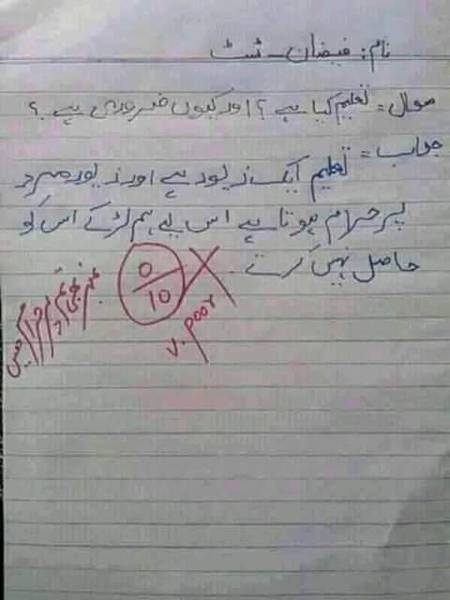 نام: فیضان - ٹسٹ
سوال = تعلیم کیا ہے؟ اور کیوں ضروری ہے؟
جواب = تعلیم ایک زیور ہے اور زیور مرد
پر حرام ہوتا ہے اس لیے ہم لڑکے اس کو
حاصل نہیں کرتے۔
0/10
v. poor